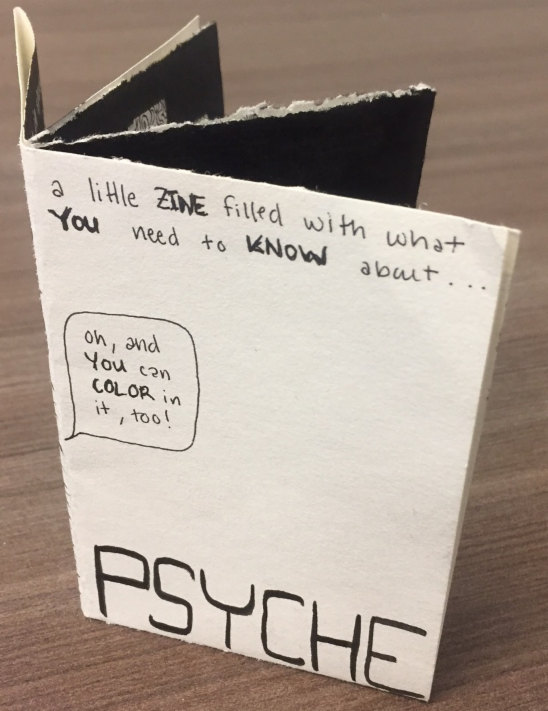 a little ZINE filled with what
YOU need to KNOW about...
oh, and
YOU can
COLOR in
it, too!
PSYCHE